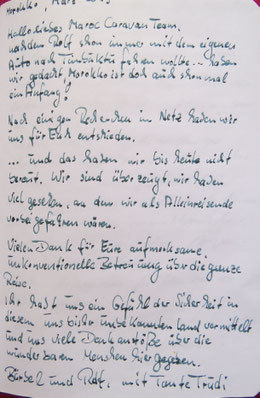 Marokko
Hallo liebes Maroc Caravan Team,
nachdem Rolf schon immer mit dem eigenen
Auto nach Timbuktu fahren wollte... haben
wir gedacht, Marokko ist doch auch schon mal
ein Anfang!
Nach einigen Recherchen im Netz haben wir
uns für Euch entschieden.
... und das haben wir bis heute nicht
bereut. Wir sind überzeugt, wir haben
viel gesehen, an dem wir als Alleinreisende
vorbei gefahren wären.
Vielen Dank für Eure aufmerksame,
unkonventionelle Betreuung über die ganze
Reise.
Ihr habt uns ein Gefühl der Sicherheit in
diesem uns bisher unbekannten Land vermittelt
und uns viele Denkanstöße über die
wunderbaren Menschen hier gegeben.
Bärbel und Rolf, mit Tante Trudi